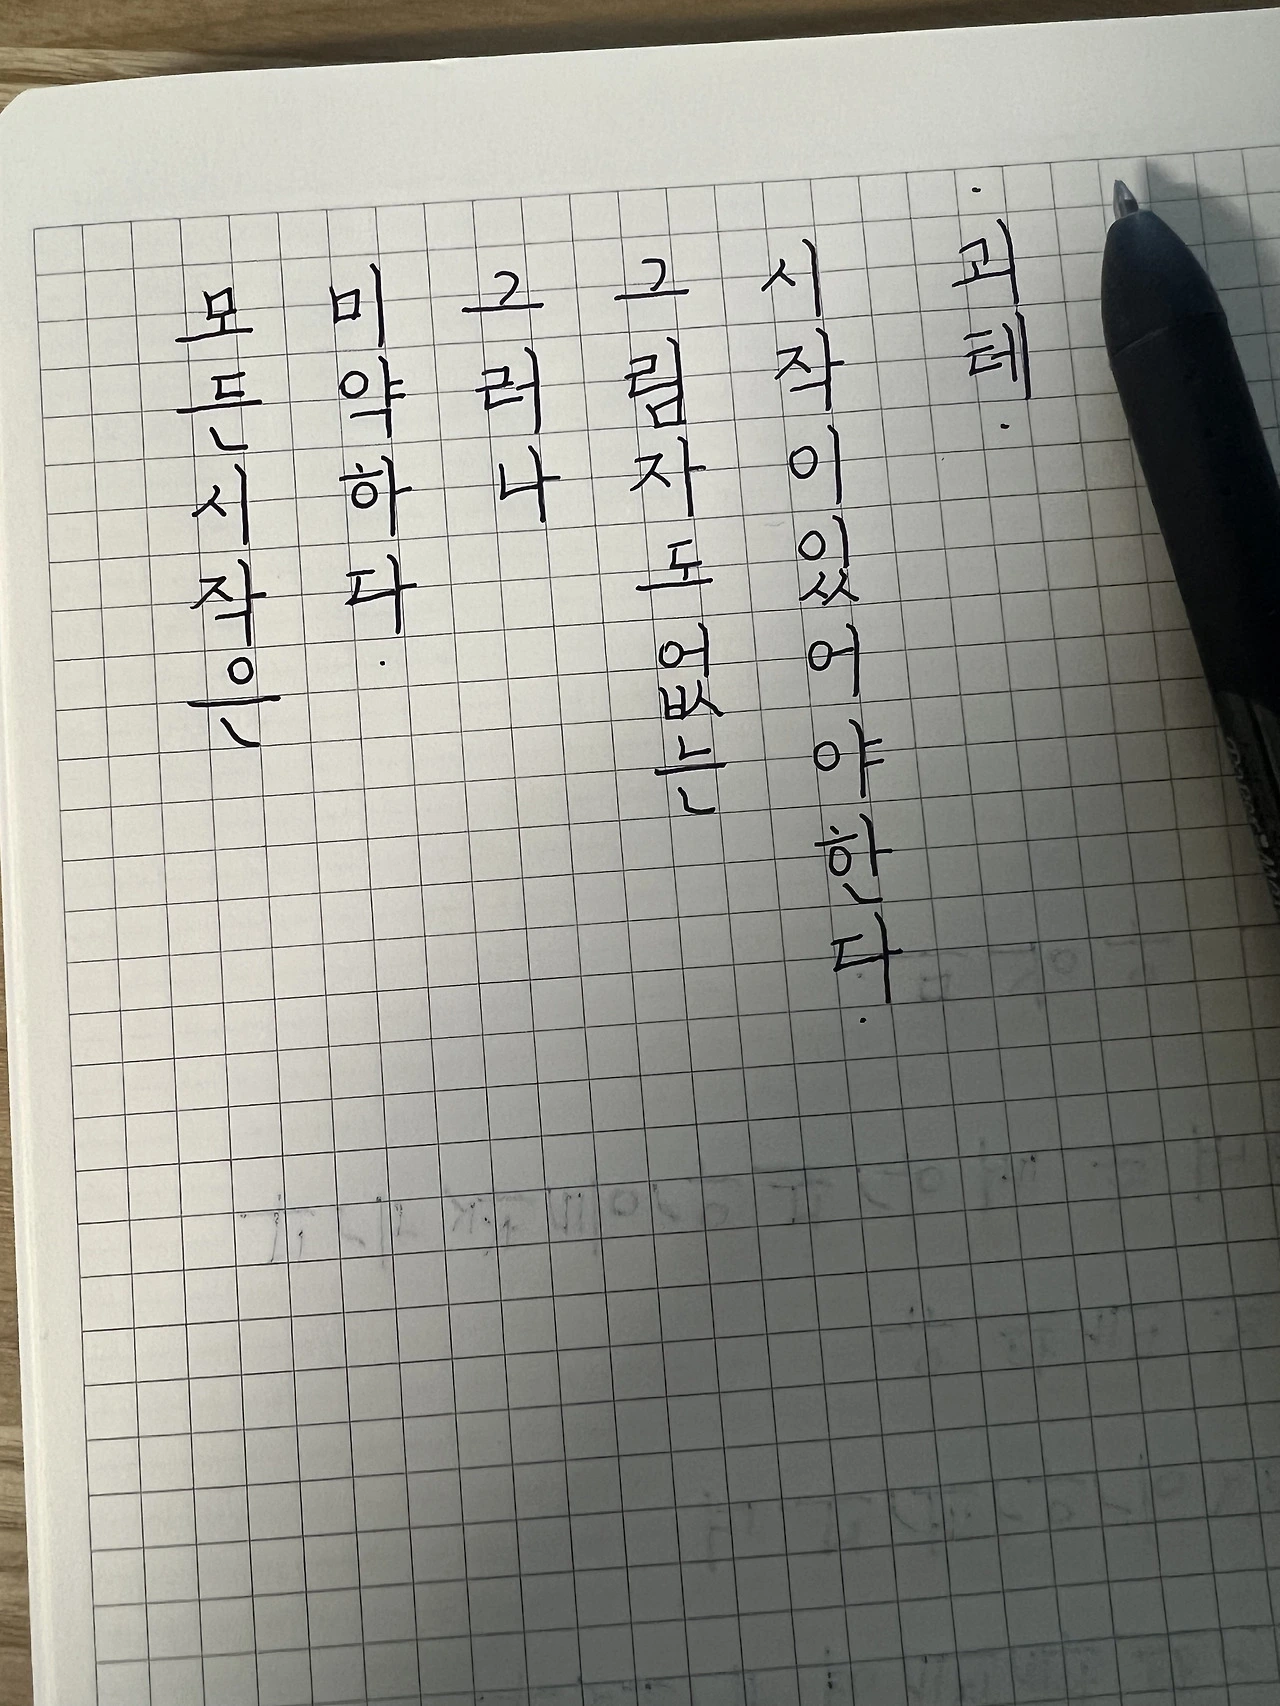 모든시작은
미약하다.
그러나
그림자도없는
시작이있어야한다.
·괴테·